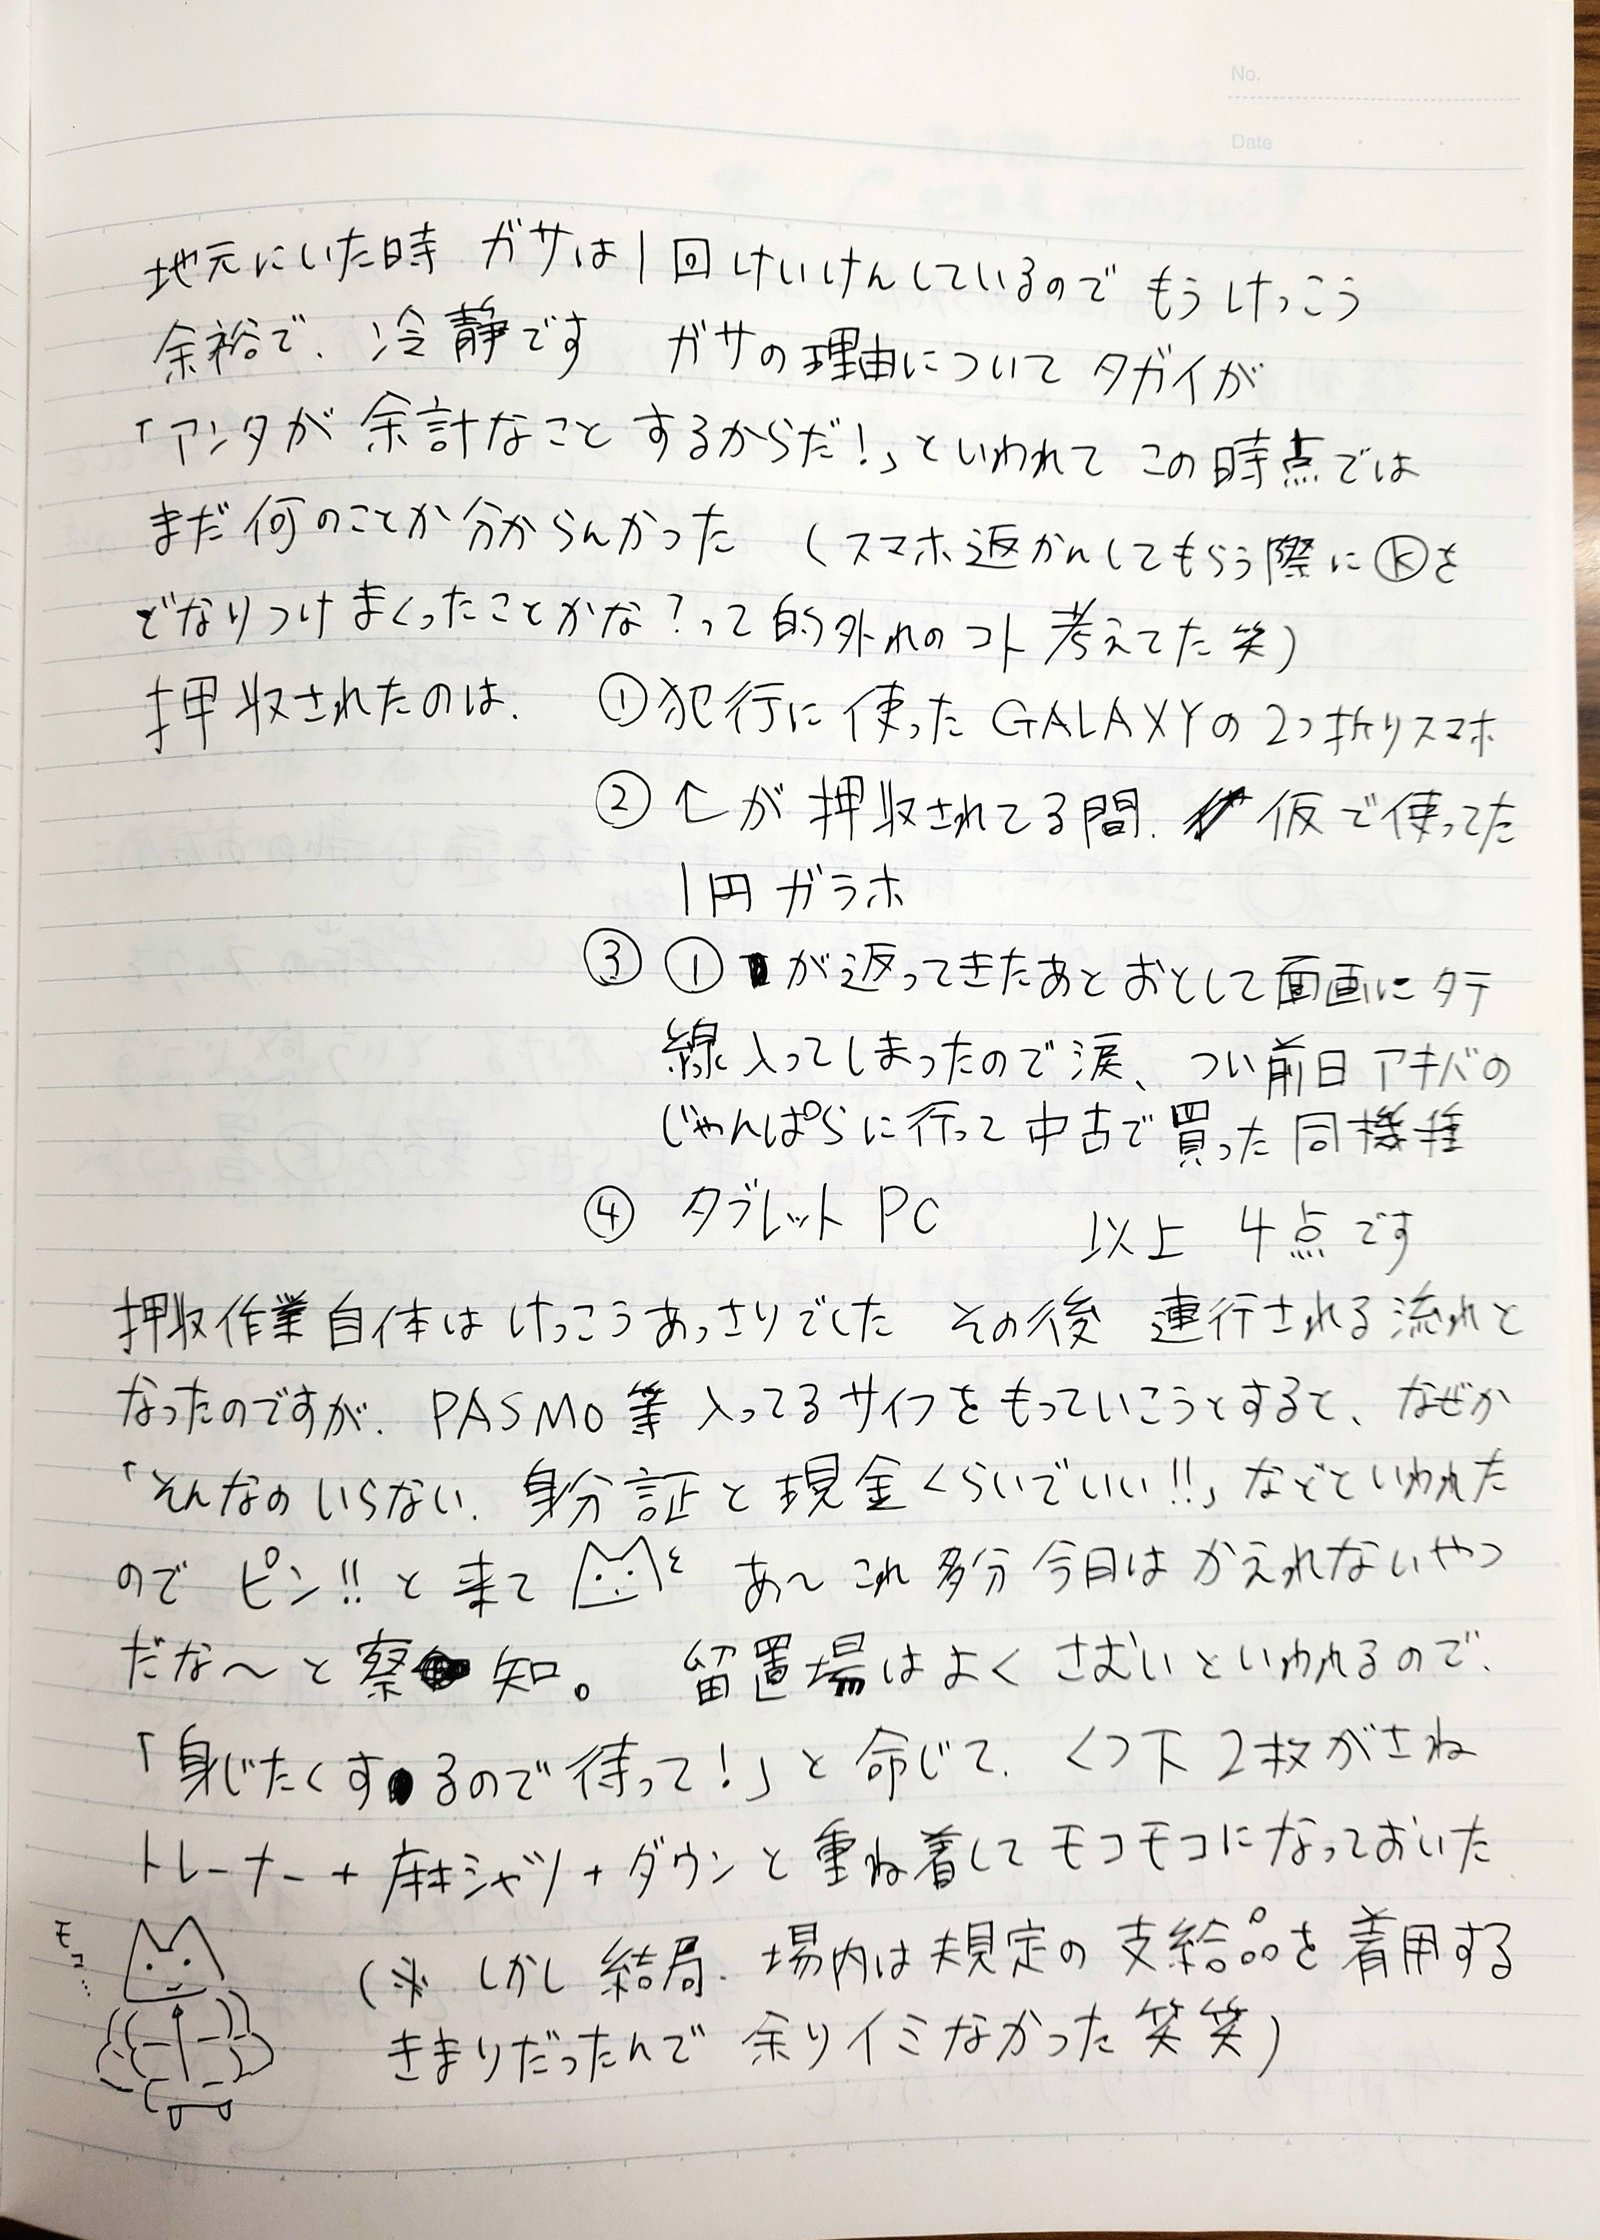 No.
Date
地元にいた時 ガサは1回けいけんしているので もうけっこう
余裕で、冷静です ガサの理由について タガイが
「アンタが 余計なこと するからだ!」といわれて この時点では
まだ何のことか分からんかった (スマホ返かんしてもらう際にⓀを
どなりつけまくったことかな?って的外れのコト考えてた笑)
押収されたのは、 ①犯行に使ったGALAXYの2つ折りスマホ
②↑が押収されてる間、仮で使ってた
1円ガラホ
③ ①が返ってきたあとおとして画面にタテ
線入ってしまったので涙、つい前日アキバの
じゃんぱらに行って中古で買った同機種
④ タブレットPC 以上 4点です
押収作業自体はけっこうあっさりでした その後 連行される流れと
なったのですが、PASMO等入ってるサイフをもっていこうとすると、なぜか
「そんなのいらない、身分証と現金くらいでいい!!」などといわれた
ので ピン!!と来て あ〜これ多分今日はかえれないやつ
だな〜と察知。 留置場はよくさむいといわれるので、
「身じたくするので待って!」と命じて、くつ下2枚がさね
トレーナー+麻シャツ+ダウンと重ね着してモコモコになっておいた
モコ…
(※しかし結局、場内は規定の支給品を着用する
きまりだったんで余りイミなかった笑笑)